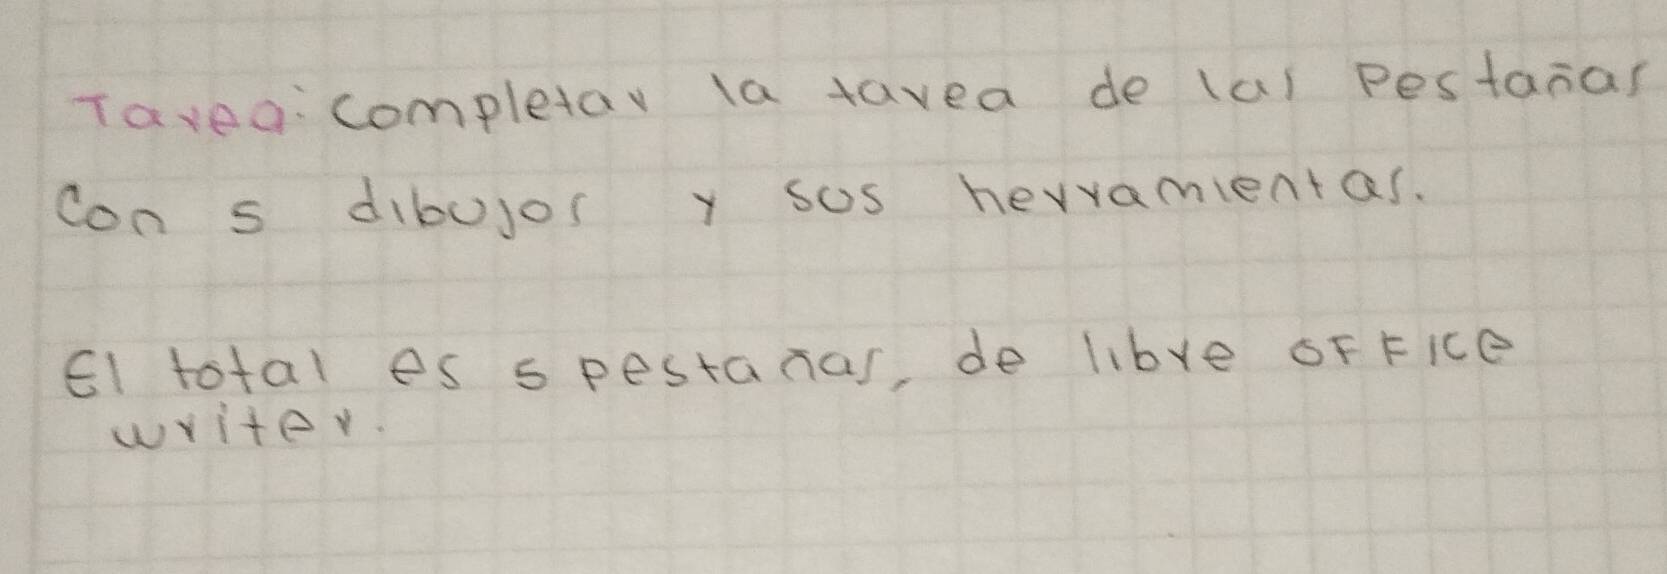 Tarea: completar la tarea de las Pestañas
Con 5 dibujos y sus herramientas.
El total es 5 pestañas, de libre OFFICe
writer.